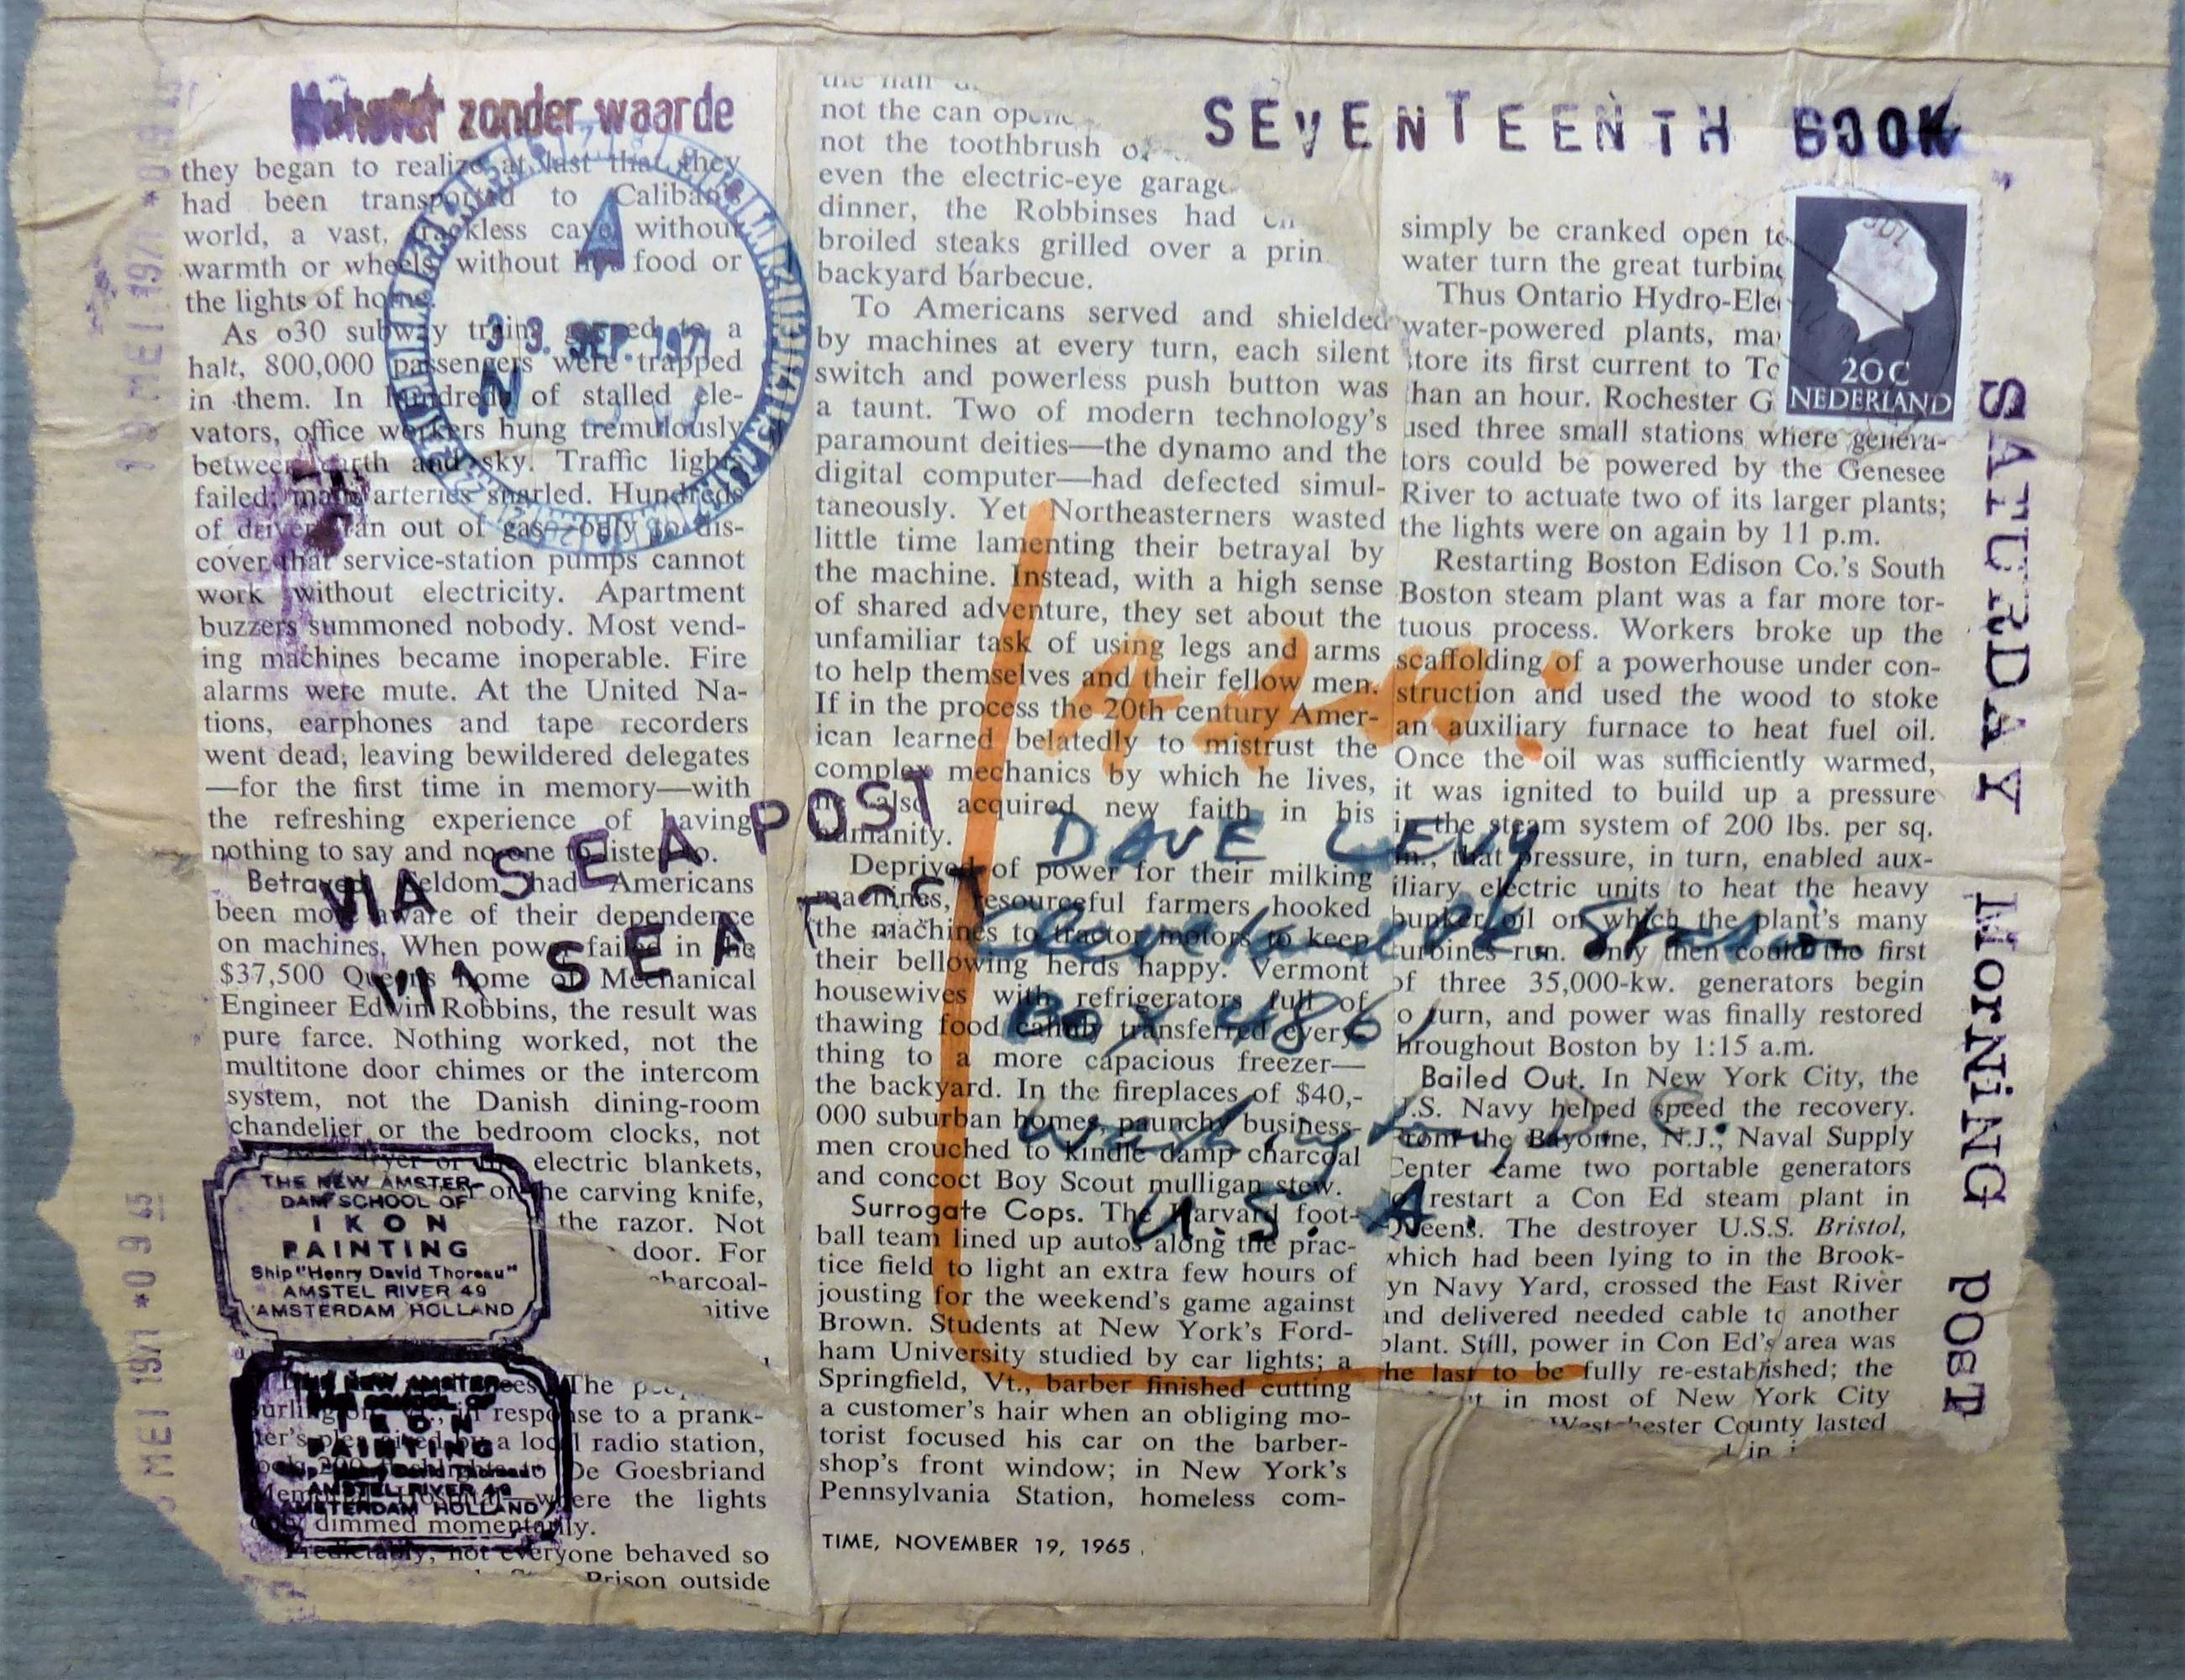 Monster zonder waarde
SEVENTEENTH BOOK
they began to realize at last that they
had been transported to Caliban's
world, a vast, trackless cave without
warmth or wheels, without food or
the lights of home.
As 630 subway trains gasped to a
halt, 800,000 passengers were trapped
in them. In hundreds of stalled ele-
vators, office workers hung tremulously
between earth and sky. Traffic lights
failed; main arteries snarled. Hundreds
of drivers ran out of gas—only to dis-
cover that service-station pumps cannot
work without electricity. Apartment
buzzers summoned nobody. Most vend-
ing machines became inoperable. Fire
alarms were mute. At the United Na-
tions, earphones and tape recorders
went dead, leaving bewildered delegates
—for the first time in memory—with
the refreshing experience of having
nothing to say and no one to listen to.
Betrayed. Seldom had Americans
been more aware of their dependence
on machines. When power failed in the
$37,500 Queens home of Mechanical
Engineer Edwin Robbins, the result was
pure farce. Nothing worked, not the
multitone door chimes or the intercom
system, not the Danish dining-room
chandelier or the bedroom clocks, not
dryer or the electric blankets,
or the carving knife,
the razor. Not
door. For
charcoal-
nitive
The
in response to a prank-
ter's a local radio station,
to De Goesbriand
where the lights
dimmed momentarily.
Predictably, not everyone behaved so
Prison outside
33. SEP. 1971
A
N
VIA SEA POST
VIA SEA POST
THE NEW AMSTER-
DAM SCHOOL OF
IKON
PAINTING
Ship "Henry David Thoreau"
AMSTEL RIVER 49
AMSTERDAM HOLLAND
THE NEW AMSTER-
IKON
PAINTING
AMSTEL RIVER 49
AMSTERDAM HOLLAND
MEI 1971
MEI 1971 *0945
the
not the can
not the toothbrush
even the electric-eye garage
dinner, the Robbinses had
broiled steaks grilled over a prin
backyard barbecue.
To Americans served and shielded
by machines at every turn, each silent
switch and powerless push button was
a taunt. Two of modern technology's
paramount deities—the dynamo and the
digital computer—had defected simul-
taneously. Yet Northeasterners wasted
little time lamenting their betrayal by
the machine. Instead, with a high sense
of shared adventure, they set about the
unfamiliar task of using legs and arms
to help themselves and their fellow men.
If in the process the 20th century Amer-
ican learned belatedly to mistrust the
complex mechanics by which he lives,
he also acquired new faith in his
humanity.
Deprived of power for their milking
machines, resourceful farmers hooked
the machines to tractor motors to keep
their bellowing herds happy. Vermont
housewives with refrigerators full of
thawing food calmly transferred every-
thing to a more capacious freezer—
the backyard. In the fireplaces of $40,-
000 suburban homes, paunchy business-
men crouched to kindle damp charcoal
and concoct Boy Scout mulligan stew.
Surrogate Cops. The Harvard foot-
ball team lined up autos along the prac-
tice field to light an extra few hours of
jousting for the weekend's game against
Brown. Students at New York's Ford-
ham University studied by car lights; a
Springfield, Vt., barber finished cutting
a customer's hair when an obliging mo-
torist focused his car on the barber-
shop's front window; in New York's
Pennsylvania Station, homeless com-
TIME, NOVEMBER 19, 1965
DAVE LEVY
Station
Box 486
Washington, D.C.
U.S.A.
simply be cranked open to
water turn the great turbine
Thus Ontario Hydro-Ele
water-powered plants, ma
store its first current to To
than an hour. Rochester G
used three small stations where genera-
tors could be powered by the Genesee
River to actuate two of its larger plants;
the lights were on again by 11 p.m.
Restarting Boston Edison Co.'s South
Boston steam plant was a far more tor-
tuous process. Workers broke up the
scaffolding of a powerhouse under con-
struction and used the wood to stoke
an auxiliary furnace to heat fuel oil.
Once the oil was sufficiently warmed,
it was ignited to build up a pressure
in the steam system of 200 lbs. per sq.
in., that pressure, in turn, enabled aux-
iliary electric units to heat the heavy
bunker oil on which the plant's many
turbines run. Only then could the first
of three 35,000-kw. generators begin
to turn, and power was finally restored
throughout Boston by 1:15 a.m.
Bailed Out. In New York City, the
U.S. Navy helped speed the recovery.
From the Bayonne, N.J., Naval Supply
Center came two portable generators
to restart a Con Ed steam plant in
Queens. The destroyer U.S.S. Bristol,
which had been lying to in the Brook-
lyn Navy Yard, crossed the East River
and delivered needed cable to another
plant. Still, power in Con Ed's area was
the last to be fully re-established; the
in most of New York City
Westchester County lasted
in
20 C
NEDERLAND
SATURDAY MorNiNG POST